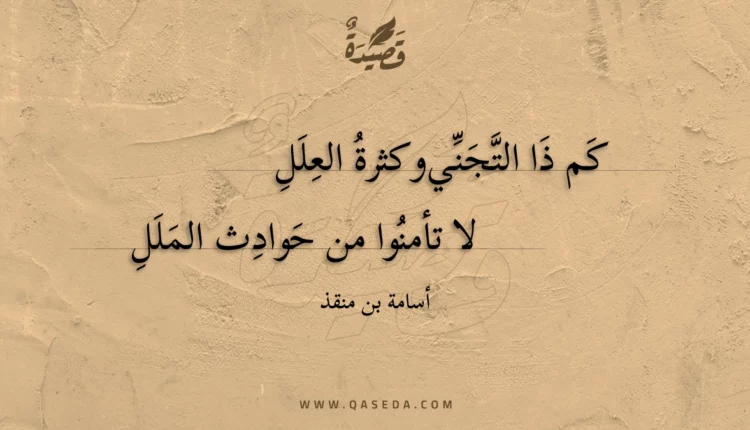 قَصِيْدَةٌ
كَم ذَا التَّجَنِّي وكثرةُ العِلَلِ
لا تأمنُوا من حَوادِث المَلَلِ
أسامة بن منقذ
WWW.QASEDA.COM